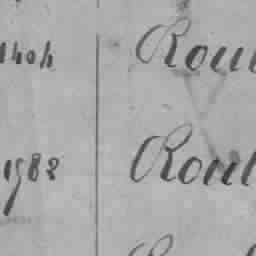 1404 Roul
1982 Roul